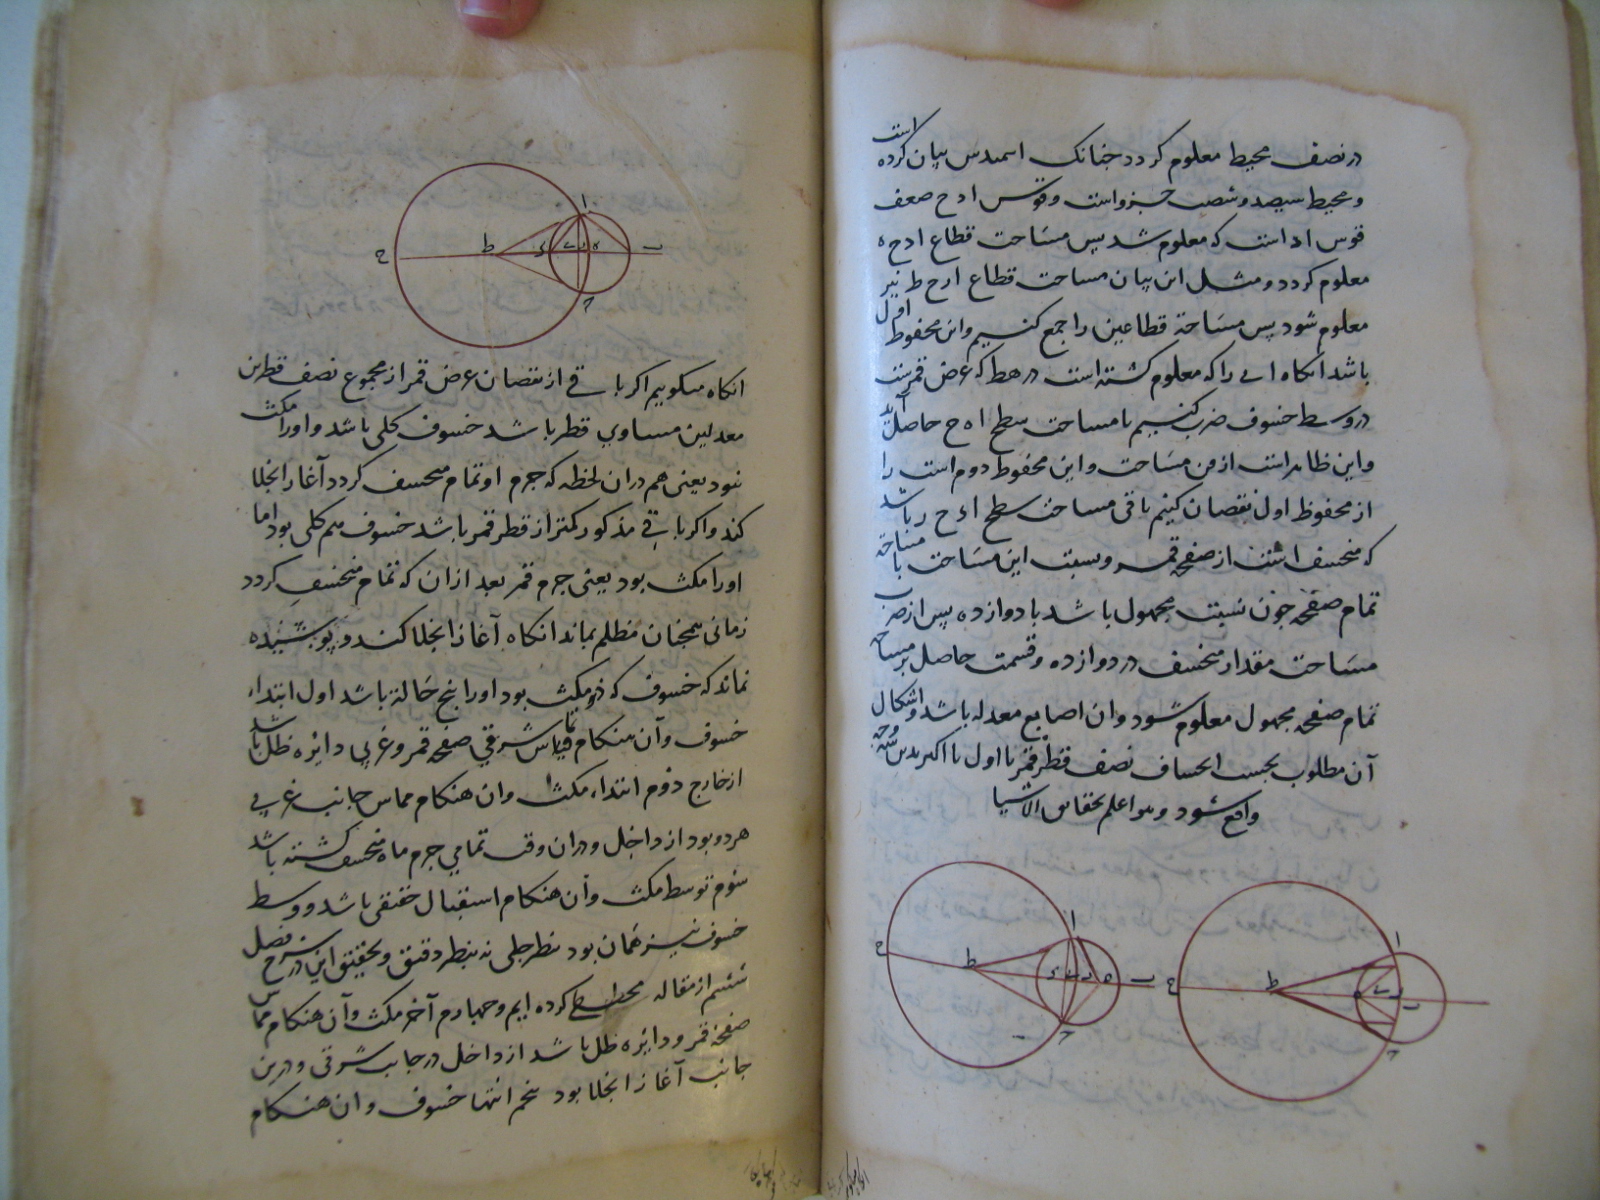 در نصف محیط معلوم کردد جنانک اسمیدس بیان کرده است
و محیط سیصد و شصت جزو است و قوس ا د ح ضعف
قوس ا د است که معلوم شد پس مساحت قطاع ا د ح ه
معلوم کردد و مثل این بیان مساحت قطاع ا ر ح ط نیز
معلوم شود پس مساحة قطاعین را جمع کنیم و این محفوظ اول
باشد انکاه ا ی را که معلوم کشته است در ه ط که عرض قمرست
در وسط خسوف ضرب کنیم تا مساحت سطح ا ه ح حاصل آید
و این ظاهر است از فن مساحت و این محفوظ دوم است را
از محفوظ اول نقصان کنیم باقی مساحت سطح ا ء ح ر باشد
که منخسف است از صفحه قمر و نسبت این مساحت با مساحة
تمام صفحه چون نسبت مجهول باشد با دوازده پس از ضرب
مساحت مقدار منخسف در دوازده و قسمت حاصل بر مساحة
تمام صفحه مجهول معلوم شود و ان اصابع معدله باشد و اشکال
آن مطلوب بحسب انخساف نصف قطر قمر تا اول یا اکثر بدین وجه
واقع شود و هو اعلم بحقائق الاشیا
ا
ح
ط
ء
ی
ر
ه
ب
ح
ا
ح
ط
ی
ر
ب
ح
ا
ح
ط
ء
ی
ر
ه
ب
ح
انکاه میکوییم اکر باقی از نقصان عرض قمر از مجموع نصف قطرین
معدلین مساوی قطر باشد خسوف کلی باشد و او را مکث
نبود یعنی هم دران لحظه که جرم او تمام منخسف کردد آغاز انجلا
کند و اکر باقی مذکور کمتر از قطر قمر باشد خسوف هم کلی بود اما
او را مکث بود یعنی جرم قمر بعد ازان که تمام منخسف کردد
زمانی همچنان مظلم بماند انکاه آغاز انجلا کند و پوشیده
نماند که خسوف که ذو مکث بود او را پنج حالة باشد اول ابتداء
خسوف و آن هنکام تماس شرقی صفحه قمر و غربی دائره ظل باشد
از خارج دوم ابتداء مکث و ان هنکام مماس جانب غربی
هر دو بود از داخل و دران وقت تمامی جرم ماه منخسف کشته باشد
سوم توسط مکث و آن هنکام استقبال حقیقی باشد و وسط
خسوف نیز همان بود بنظر جلی نه بنظر دقیق و تحقیق این در شرح فصل
ششم از مقاله مجسطی کرده ایم و چهارم آخر مکث و آن هنکام تماس
صفحه قمر و دائره ظل باشد از داخل در جانب شرقی و درین
جانب آغاز انجلا بود پنجم انتها خسوف و ان هنکام